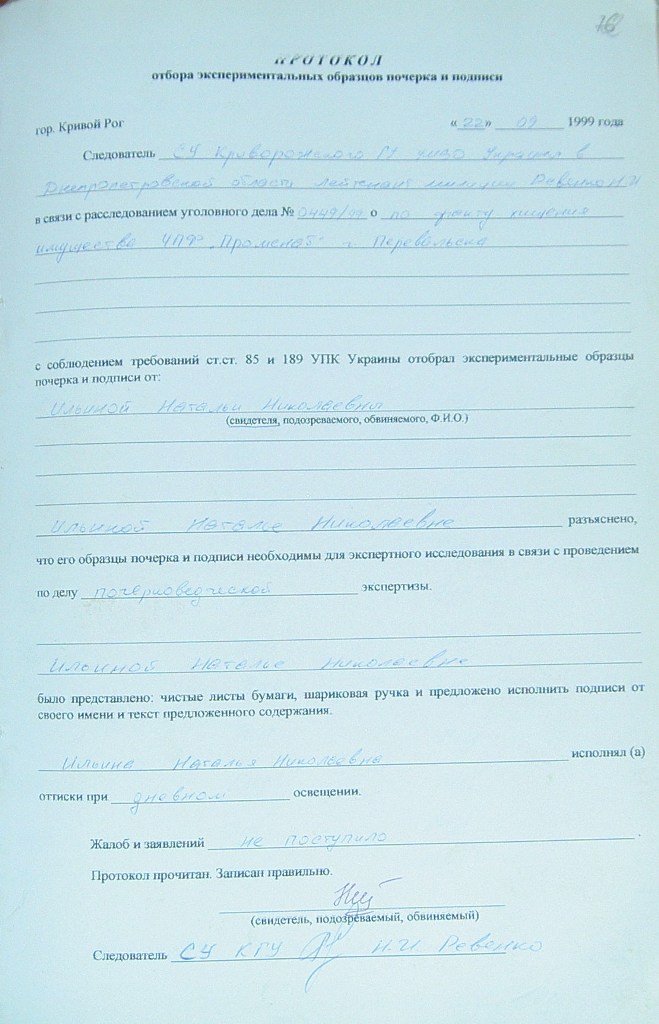 162
ПРОТОКОЛ
отбора экспериментальных образцов почерка и подписи
гор. Кривой Рог « 22 » 09 1999 года
Следователь СУ Криворожского ГУ УМВД Украины в
Днепропетровской области лейтенант милиции Ревенко Н.И
в связи с расследованием уголовного дела № о по факту хищения
имущества ЧПФ "Променат" г Перевальска
с соблюдением требований ст.ст. 85 и 189 УПК Украины отобрал экспериментальные образцы
почерка и подписи от:
Ильиной Натальи Николаевны
(свидетеля, подозреваемого, обвиняемого, Ф.И.О.)
Ильиной Наталье Николаевне разъяснено,
что его образцы почерка и подписи необходимы для экспертного исследования в связи с проведением
по делу почерковедческой экспертизы.
Ильиной Наталье Николаевне
было представлено: чистые листы бумаги, шариковая ручка и предложено исполнить подписи от
своего имени и текст предложенного содержания.
Ильина Наталья Николаевна исполнял (а)
оттиски при дневном освещении.
Жалоб и заявлений не поступило .
Протокол прочитан. Записан правильно.
(свидетель, подозреваемый, обвиняемый)
Следователь СУ КГУ Н.И Ревенко